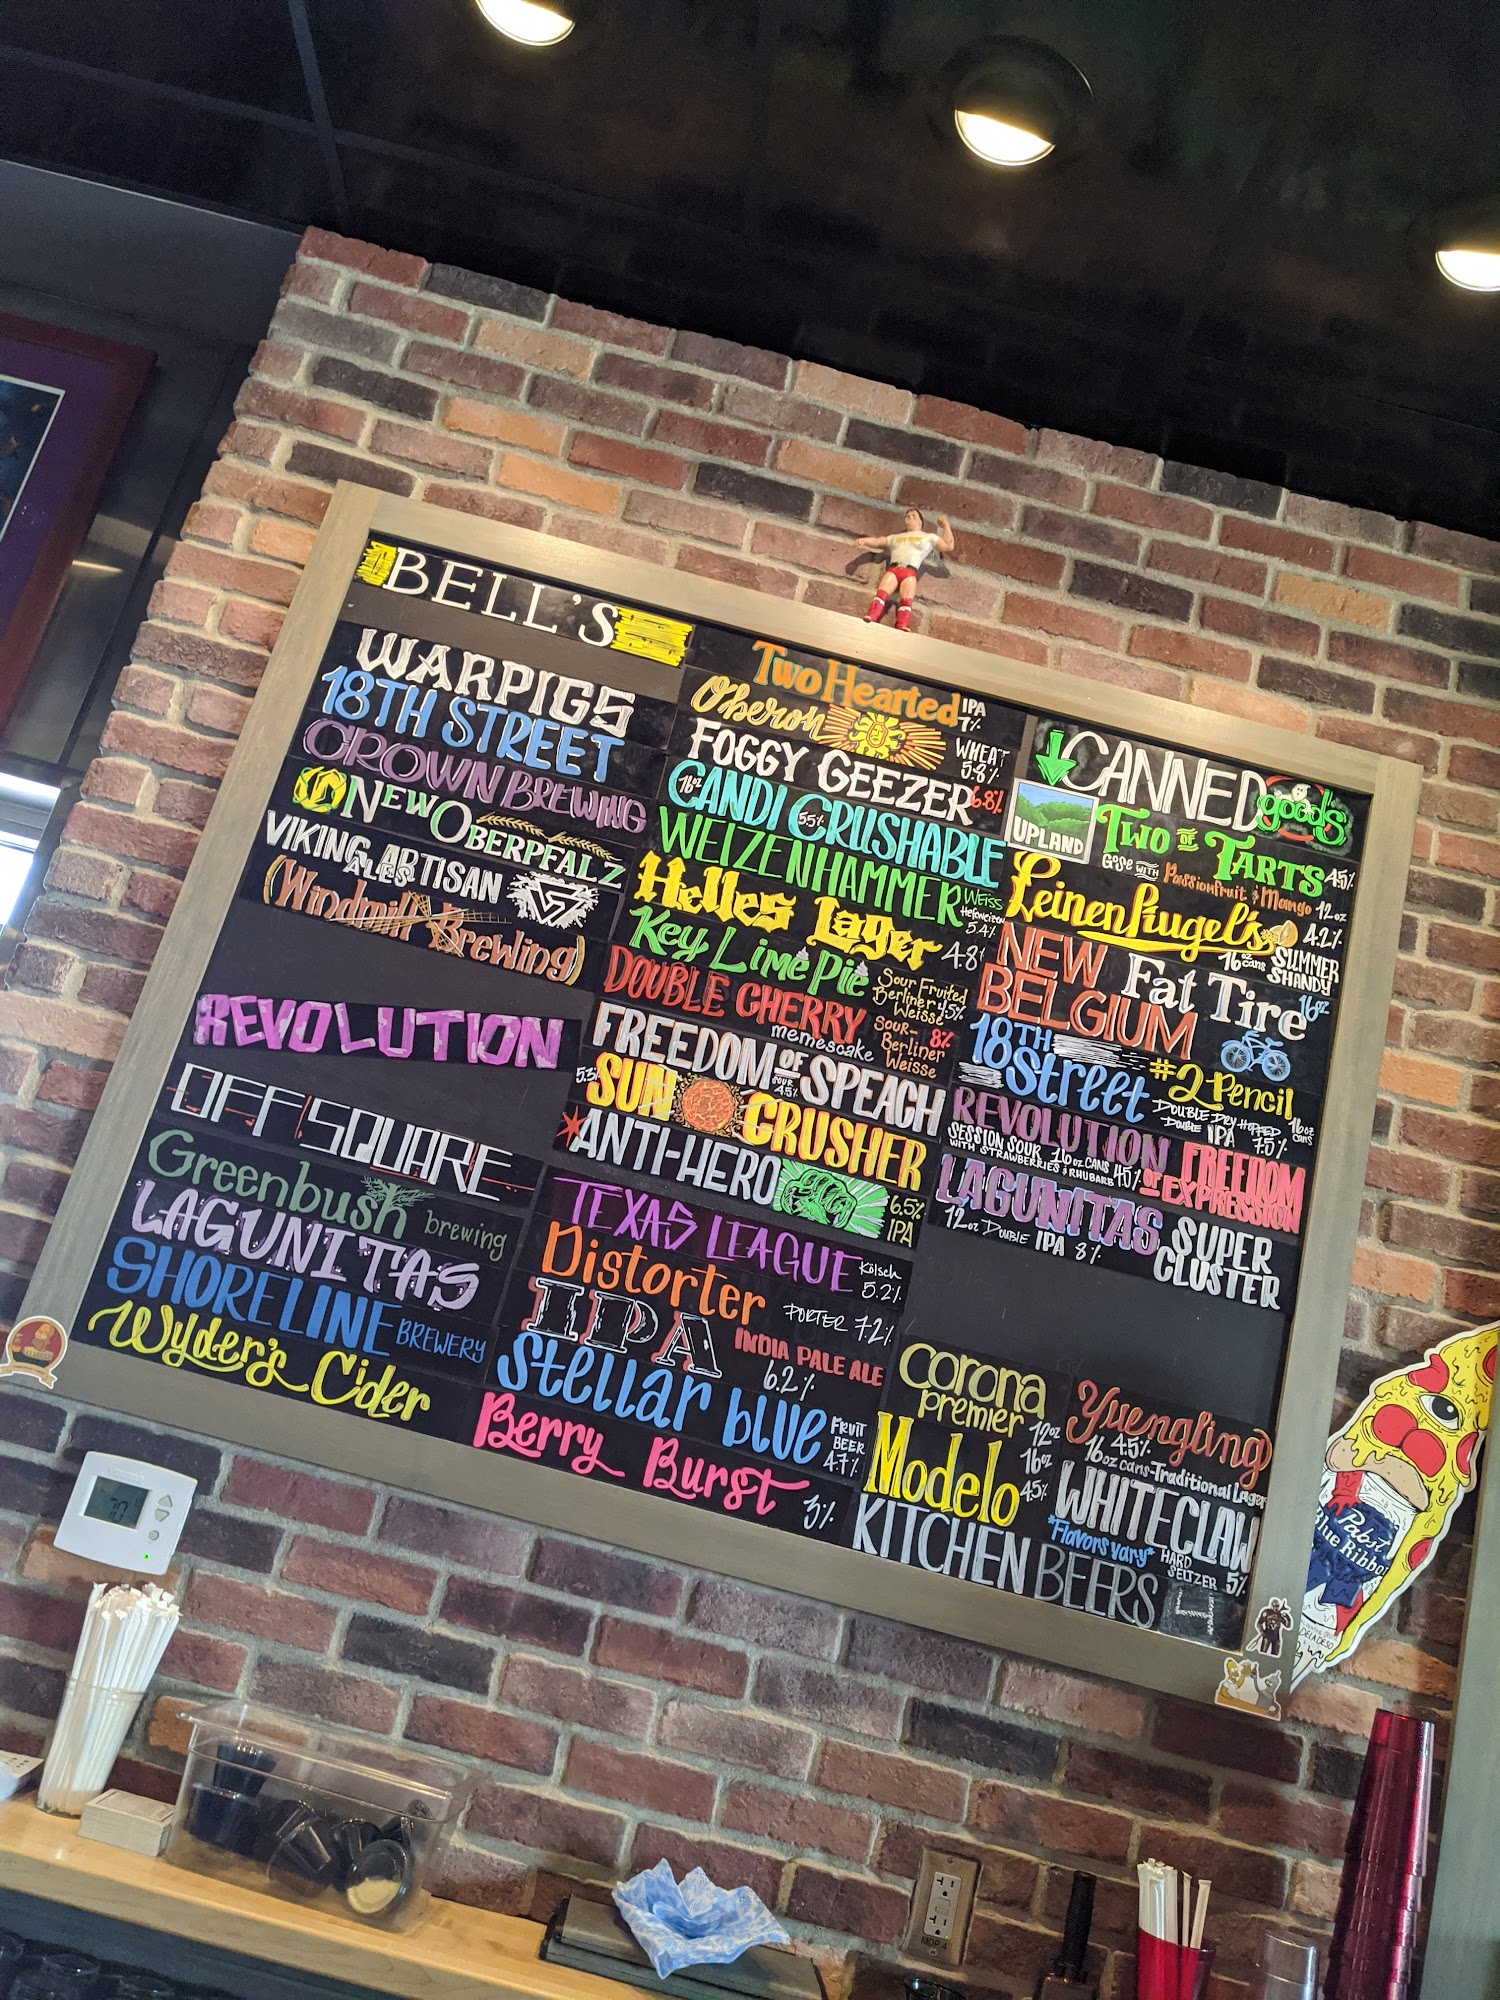 BELL'S
Two Hearted IPA 7%
Oberon WHEAT 5.8%
WARPIGS FOGGY GEEZER 6.8%
18TH STREET 16oz CANDI CRUSHABLE 5.5%
CROWN BREWING WEIZENHAMMER WEISS Hefeweizen 5.4%
NEW OBERPFALZ Helles Lager 4.8%
VIKING ARTISAN ALES Key Lime Pie Sour Fruited Berliner Weisse 4.5%
(Windmill Brewing) DOUBLE CHERRY memescake SOUR- Berliner Weisse 8%
REVOLUTION FREEDOM OF SPEACH SOUR 4.5%
5.3% SUN CRUSHER
ANTI-HERO 6.5% IPA
OFF SQUARE TEXAS LEAGUE Kölsch 5.2%
Greenbush brewing Distorter PORTER 7.2%
LAGUNITAS IPA INDIA PALE ALE 6.2%
SHORELINE BREWERY Stellar blue FRUIT BEER 4.7%
Wyder's Cider Berry Burst 5%
CANNED goods
UPLAND TWO OF TARTS 4.5%
Gose WITH Passionfruit & Mango 12oz
Leinenkugel's 4.2%
16oz cans SUMMER SHANDY
NEW BELGIUM Fat Tire 16oz
18TH Street #2 Pencil
DOUBLE DRY HOPPED DOUBLE IPA 7.5% 16oz cans
REVOLUTION FREEDOM OF EXPRESSION
SESSION SOUR WITH STRAWBERRIES & RHUBARB 4.5%
LAGUNITAS SUPER CLUSTER
12oz Double IPA 8%
corona premier 12oz
Modelo 16oz 4.5%
Yuengling 4.5%
16oz cans-Traditional Lager
WHITECLAW
*Flavors vary* HARD SELTZER 5%
KITCHEN BEERS
Pabst Blue Ribbon